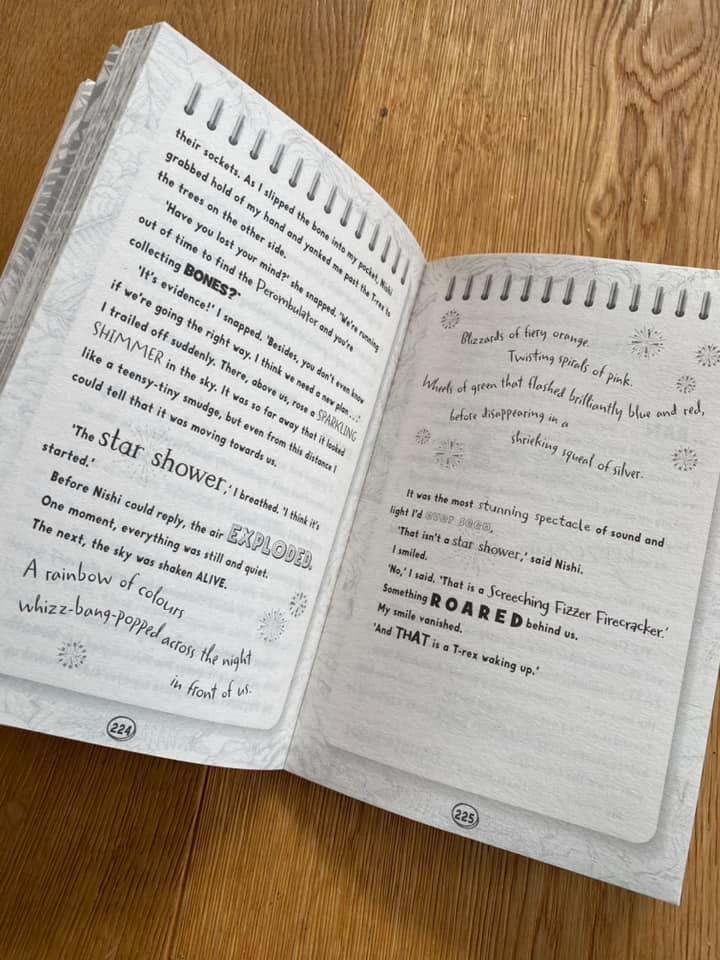 their sockets. As I slipped the bone into my pocket, Nishi
grabbed hold of my hand and yanked me past the T-rex to
the trees on the other side.
'Have you lost your mind?' she snapped. 'We're running
out of time to find the Perombulator and you're
collecting BONES?'
'It's evidence!' I snapped. 'Besides, you don't even know
if we're going the right way. I think we need a new plan . . .'
I trailed off suddenly. There, above us, rose a SPARKLING
SHIMMER in the sky. It was so far away that it looked
like a teensy-tiny smudge, but even from this distance I
could tell that it was moving towards us.
'The star shower,' I breathed. 'I think it's
started.'
Before Nishi could reply, the air EXPLODED.
One moment, everything was still and quiet.
The next, the sky was shaken ALIVE.
A rainbow of colours
whizz-bang-popped across the night
in front of us.
224
Blizzards of fiery orange.
Twisting spirals of pink.
Wheels of green that flashed brilliantly blue and red,
before disappearing in a
shrieking squeal of silver.
It was the most stunning spectacle of sound and
light I'd ever seen.
'That isn't a star shower,' said Nishi.
I smiled.
'No,' I said. 'That is a Screeching Fizzer Firecracker.'
Something ROARED behind us.
My smile vanished.
'And THAT is a T-rex waking up.'
225